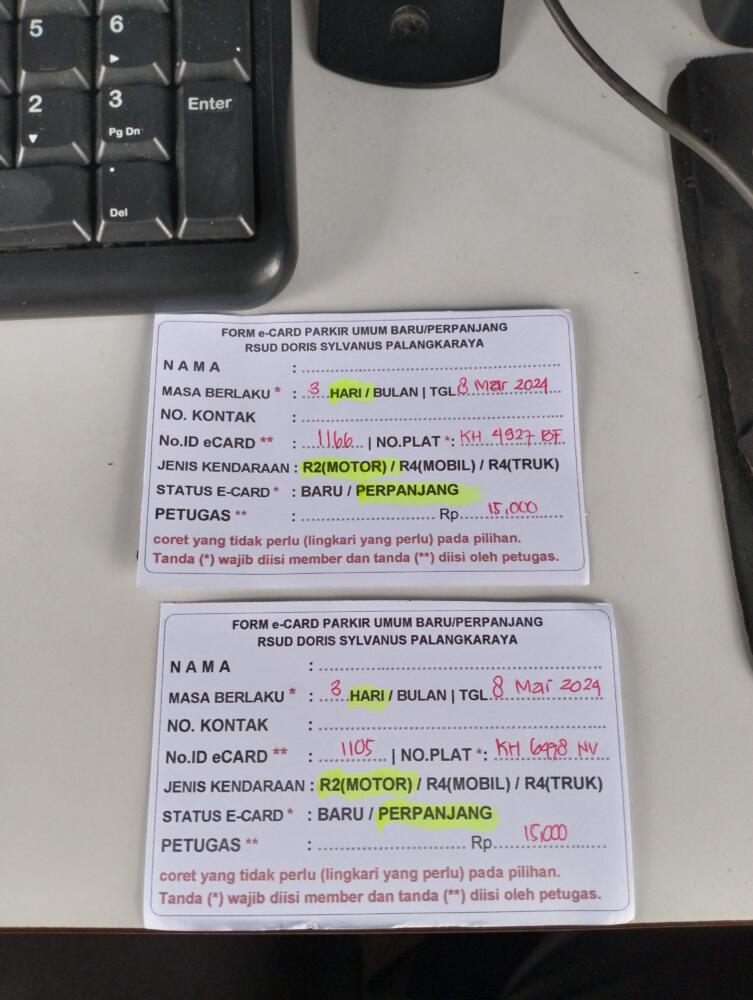 5
6
2
3
Pg Dn
Enter
Del
FORM e-CARD PARKIR UMUM BARU/PERPANJANG
RSUD DORIS SYLVANUS PALANGKARAYA
NAMA :
MASA BERLAKU * : 3 HARI / BULAN | TGL 8 Mar 2024
NO. KONTAK :
No.ID eCARD ** : 1166 | NO.PLAT *: KH 4927 BF
JENIS KENDARAAN : R2(MOTOR) / R4(MOBIL) / R4(TRUK)
STATUS E-CARD * : BARU / PERPANJANG
PETUGAS ** : Rp 15,000
coret yang tidak perlu (lingkari yang perlu) pada pilihan.
Tanda (*) wajib diisi member dan tanda (**) diisi oleh petugas.
FORM e-CARD PARKIR UMUM BARU/PERPANJANG
RSUD DORIS SYLVANUS PALANGKARAYA
NAMA :
MASA BERLAKU * : 3 HARI / BULAN | TGL 8 Mar 2024
NO. KONTAK :
No.ID eCARD ** : 1105 | NO.PLAT *: KH NV
JENIS KENDARAAN : R2(MOTOR) / R4(MOBIL) / R4(TRUK)
STATUS E-CARD * : BARU / PERPANJANG
PETUGAS ** : Rp 15,000
coret yang tidak perlu (lingkari yang perlu) pada pilihan.
Tanda (*) wajib diisi member dan tanda (**) diisi oleh petugas.